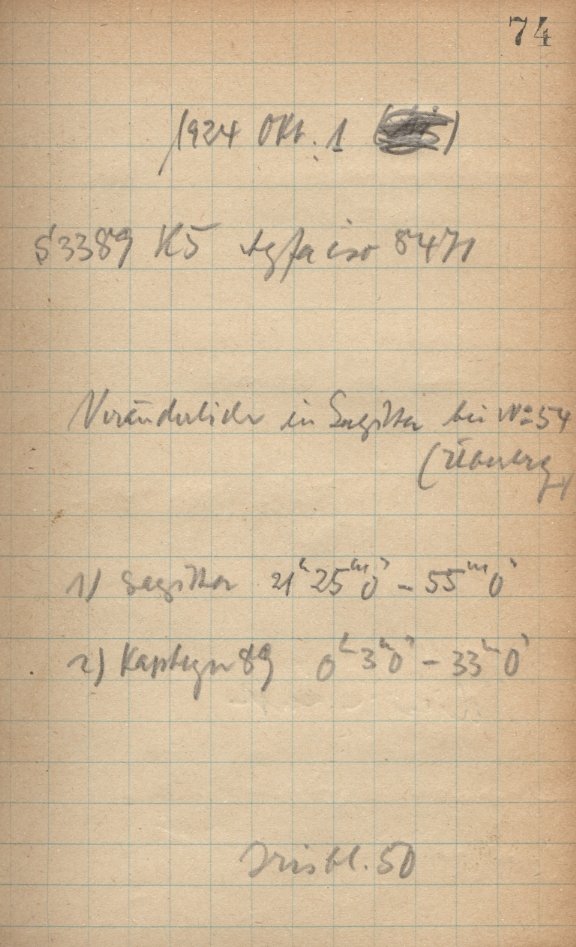 74
1924 Okt. 1
S 3389 K5 Agfa iso 8471
Veränderliche in Sagitta bei N=54
1) Sagitta 21ʰ25ᵐ0ˢ – 55ᵐ0ˢ
2) Kapteyn 89 0ʰ3ᵐ0ˢ – 33ᵐ0ˢ
Irisbl. 50